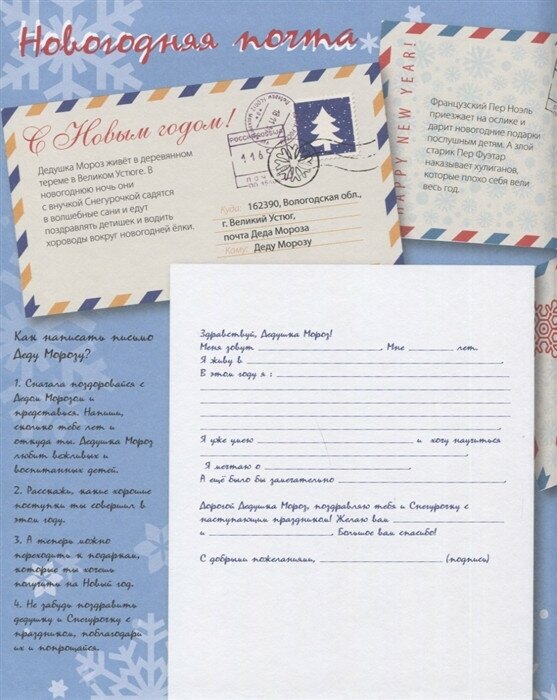 Новогодняя почта
С Новым годом!
Дедушка Мороз живёт в деревянном
тереме в Великом Устюге. В
новогоднюю ночь они
с внучкой Снегурочкой садятся
в волшебные сани и едут
поздравлять детишек и водить
хороводы вокруг новогодней ёлки.
Куда: 162390, Вологодская обл.,
г. Великий Устюг,
почта Деда Мороза
Кому: Деду Морозу
HAPPY NEW YEAR!
Французский Пер Ноэль
приезжает на ослике и
дарит новогодние подарки
послушным детям. А злой
старик Пер Фуэтар
наказывает хулиганов,
которые плохо себя вели
весь год.
Как написать письмо
Деду Морозу?
1. Сначала поздоровайся с
Дедом Морозом и
представься. Напиши,
сколько тебе лет и
откуда ты. Дедушка Мороз
любит вежливых и
воспитанных детей.
2. Расскажи, какие хорошие
поступки ты совершил в
этом году.
3. А теперь можно
переходить к подаркам,
которые ты хочешь
получить на Новый год.
4. Не забудь поздравить
дедушку и Снегурочку с
праздником, поблагодари
их и попрощайся.
Здравствуй, Дедушка Мороз!
Меня зовут ____. Мне ____ лет.
Я живу в ____.
В этом году я : ____
____
____
____.
Я уже умею ____ и хочу научиться
____.
Я мечтаю о ____.
А ещё было бы замечательно ____
____.
Дорогой Дедушка Мороз, поздравляю тебя и Снегурочку с
наступающим праздником! Желаю вам ____
и ____. Большое вам спасибо!
С добрыми пожеланиями, ____ (подпись)